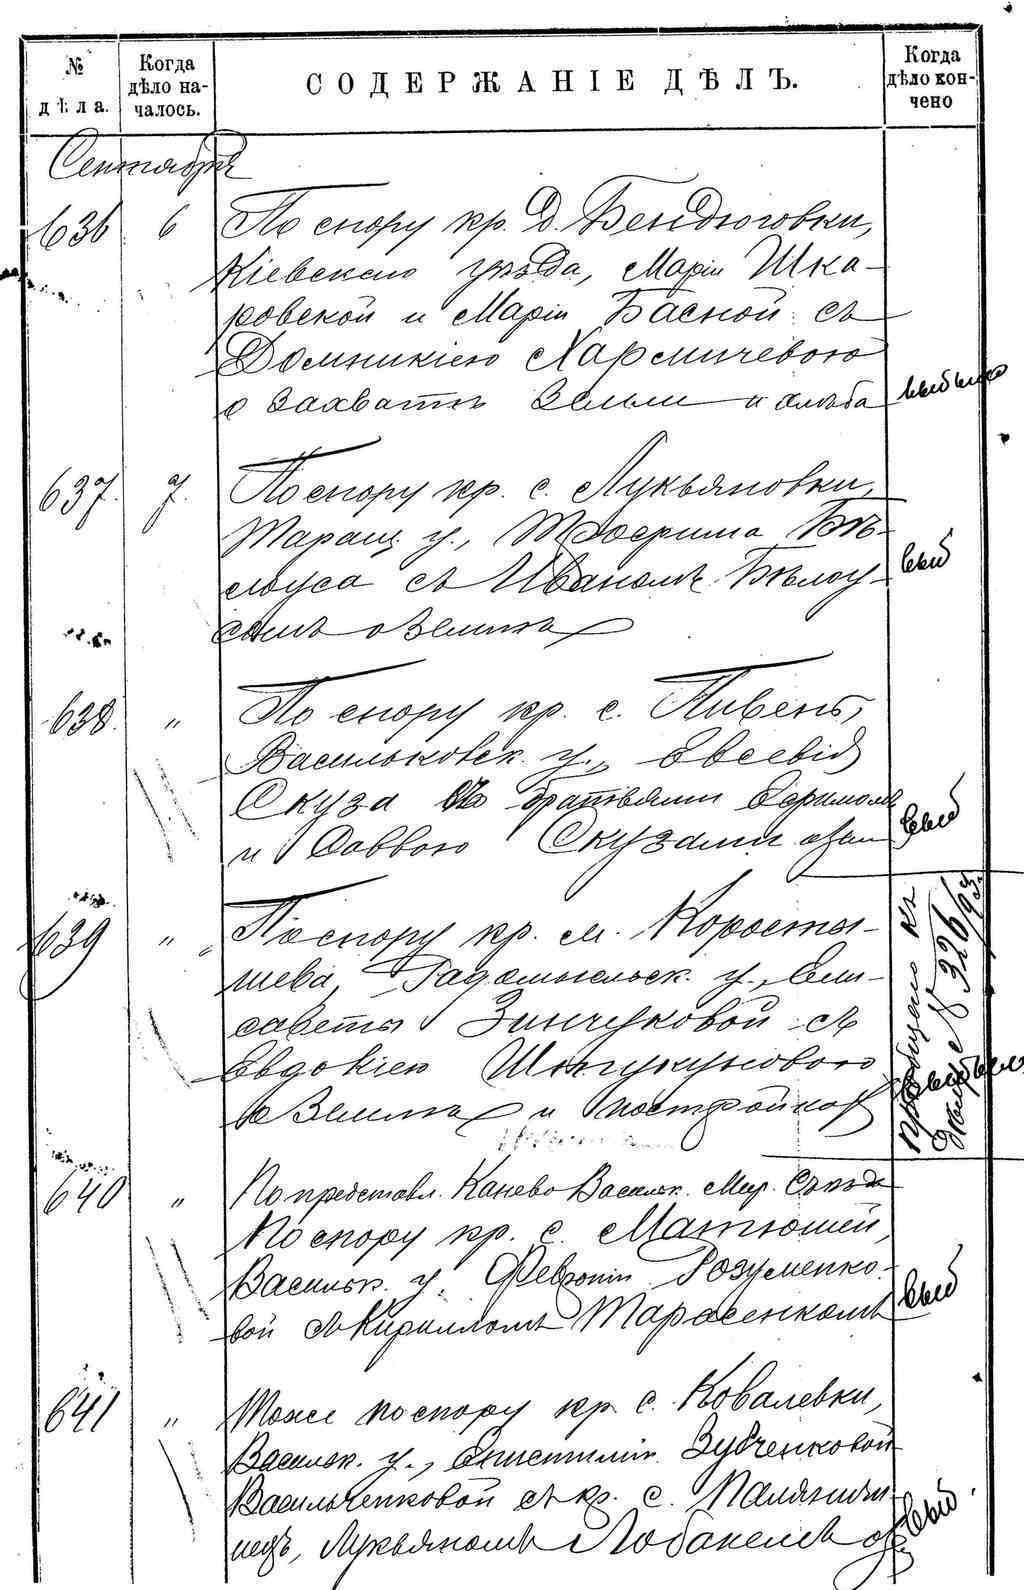 № дѣла.
Когда дѣло началось.
СОДЕРЖАНІЕ ДѢЛЪ.
Когда дѣло кончено
Сентября
636 6 По спору кр. д. Бендюговки,
Кіевскаго уѣзда, Маріи Шка-
ровской и Маріи Басной съ
Домникіею
о захватѣ земли и хлѣба выбыло
637. 7. По спору кр. с. Лукьяновки,
Таращ. у., Трофима Бѣ-
лоуса съ Иваномъ Бѣлоу- выб
сомъ о землѣ
638. " По спору кр. с. Пивень,
Васильковск. у., Евсевія
Скуза съ братьями Ефимомъ
и Саввою Скузами о зем выб
639 " По спору кр. м. Коросты-
шева, Радомысльск. у., Ели-
саветы Зинчуковой съ
Евдокіею
о землѣ и постройкахъ
пріобщено къ
дѣлу № 326/93
выбыло
640 " По представл. Канево Васильк. Мир. Съѣзда
По спору кр. с. Матюшей,
Васильк. у. Февроніи Розуменко-
вой съ Кирилломъ Тарасенкомъ выб
641 " Тоже по спору кр. с. Ковалевки,
Васильк. у., Епистиміи Зубченковой
Васильченковой съ кр. с. Паляни-
чинецъ, Лукьяномъ выб